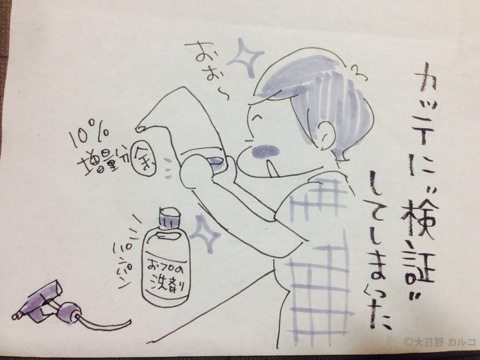 カッテに"検証"
してしまった
おぉ〜
10%
増量分 余
パンパン
おフロの
洗剤
©大日野 カルコ